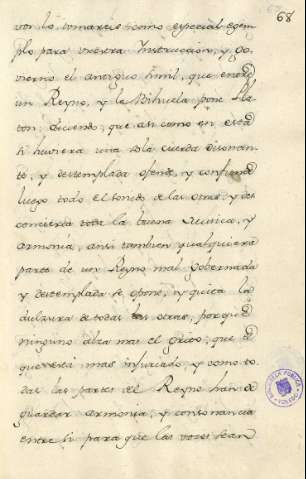 68
vor lo tomareis como especial egem
plo para vuestra Instruccion, y Go
vierno el antiguo simil, que entre
un Reyno, y la Bihuela pone Pla
ton diciendo, que asi como en esta
si huviera una sola cuerda disonan
te, y destemplada ofende, y confunde
luego todo el sonido de las otras y des
concierta toda la buena Musica, y
armonia, ansi tambien qualquiera
parte de un Reyno mal Gobernada
y destemplada se opone, y quita la
dulzura de todas las otras, porque
ninguno alza mas el grito, que el
que esta mas injuriado, y como to
das las partes del Reyno han de
guardar armonia, y consonancia
entre si para que las voces sean